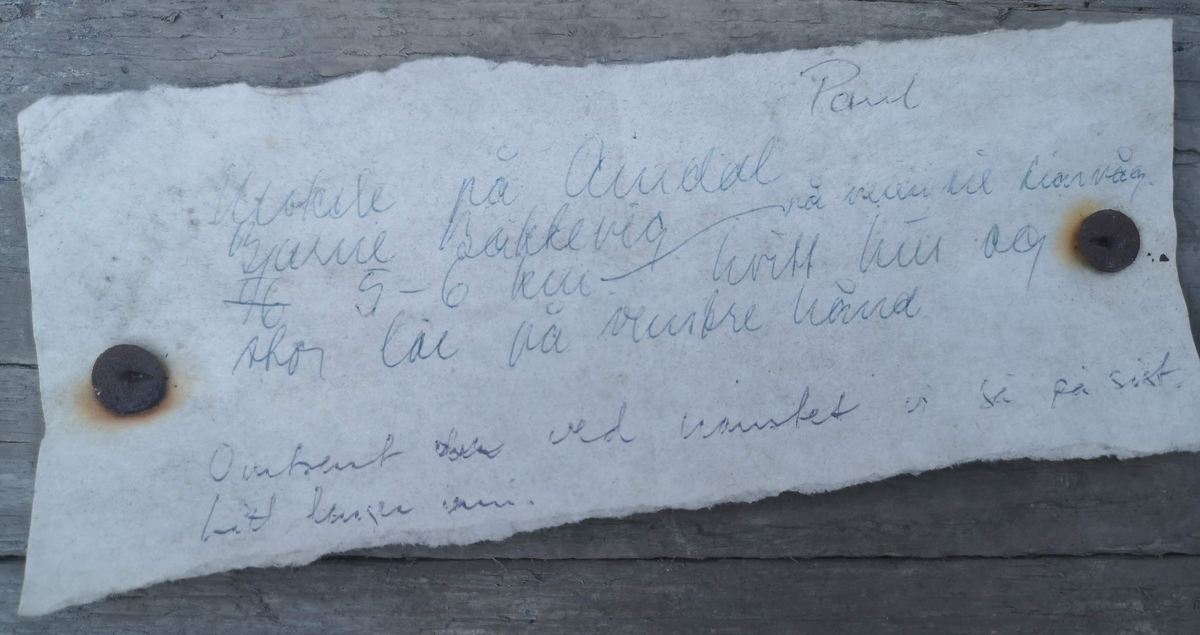 Paul
på Aundal
Bjarne Bakkevig på veien til
5-6 km hvitt hus og
stor låe på venstre hånd
Omtrent ved naustet vi så på sist.
Litt lenger inn.